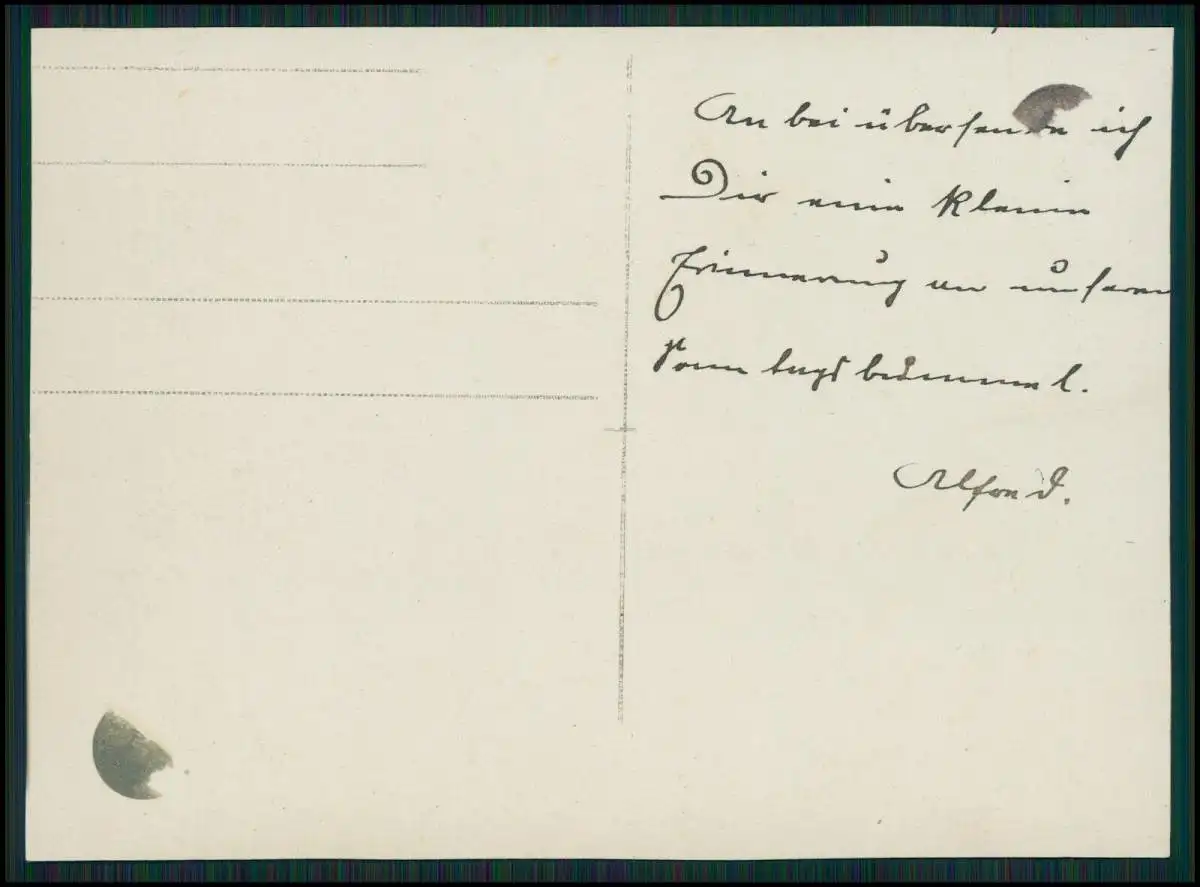 An bei übersende ich
Dir eine kleine
Erinnerung an unseren
Sonntagsbummel.
Alfred.